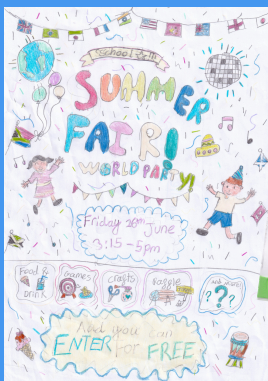 SUMMER
FAIR!
WORLD PARTY!
Friday 26th June
3:15-5pm
Food &
Drink
Games!
Crafts
Raffle
And more!
???
And you can
ENTER for FREE